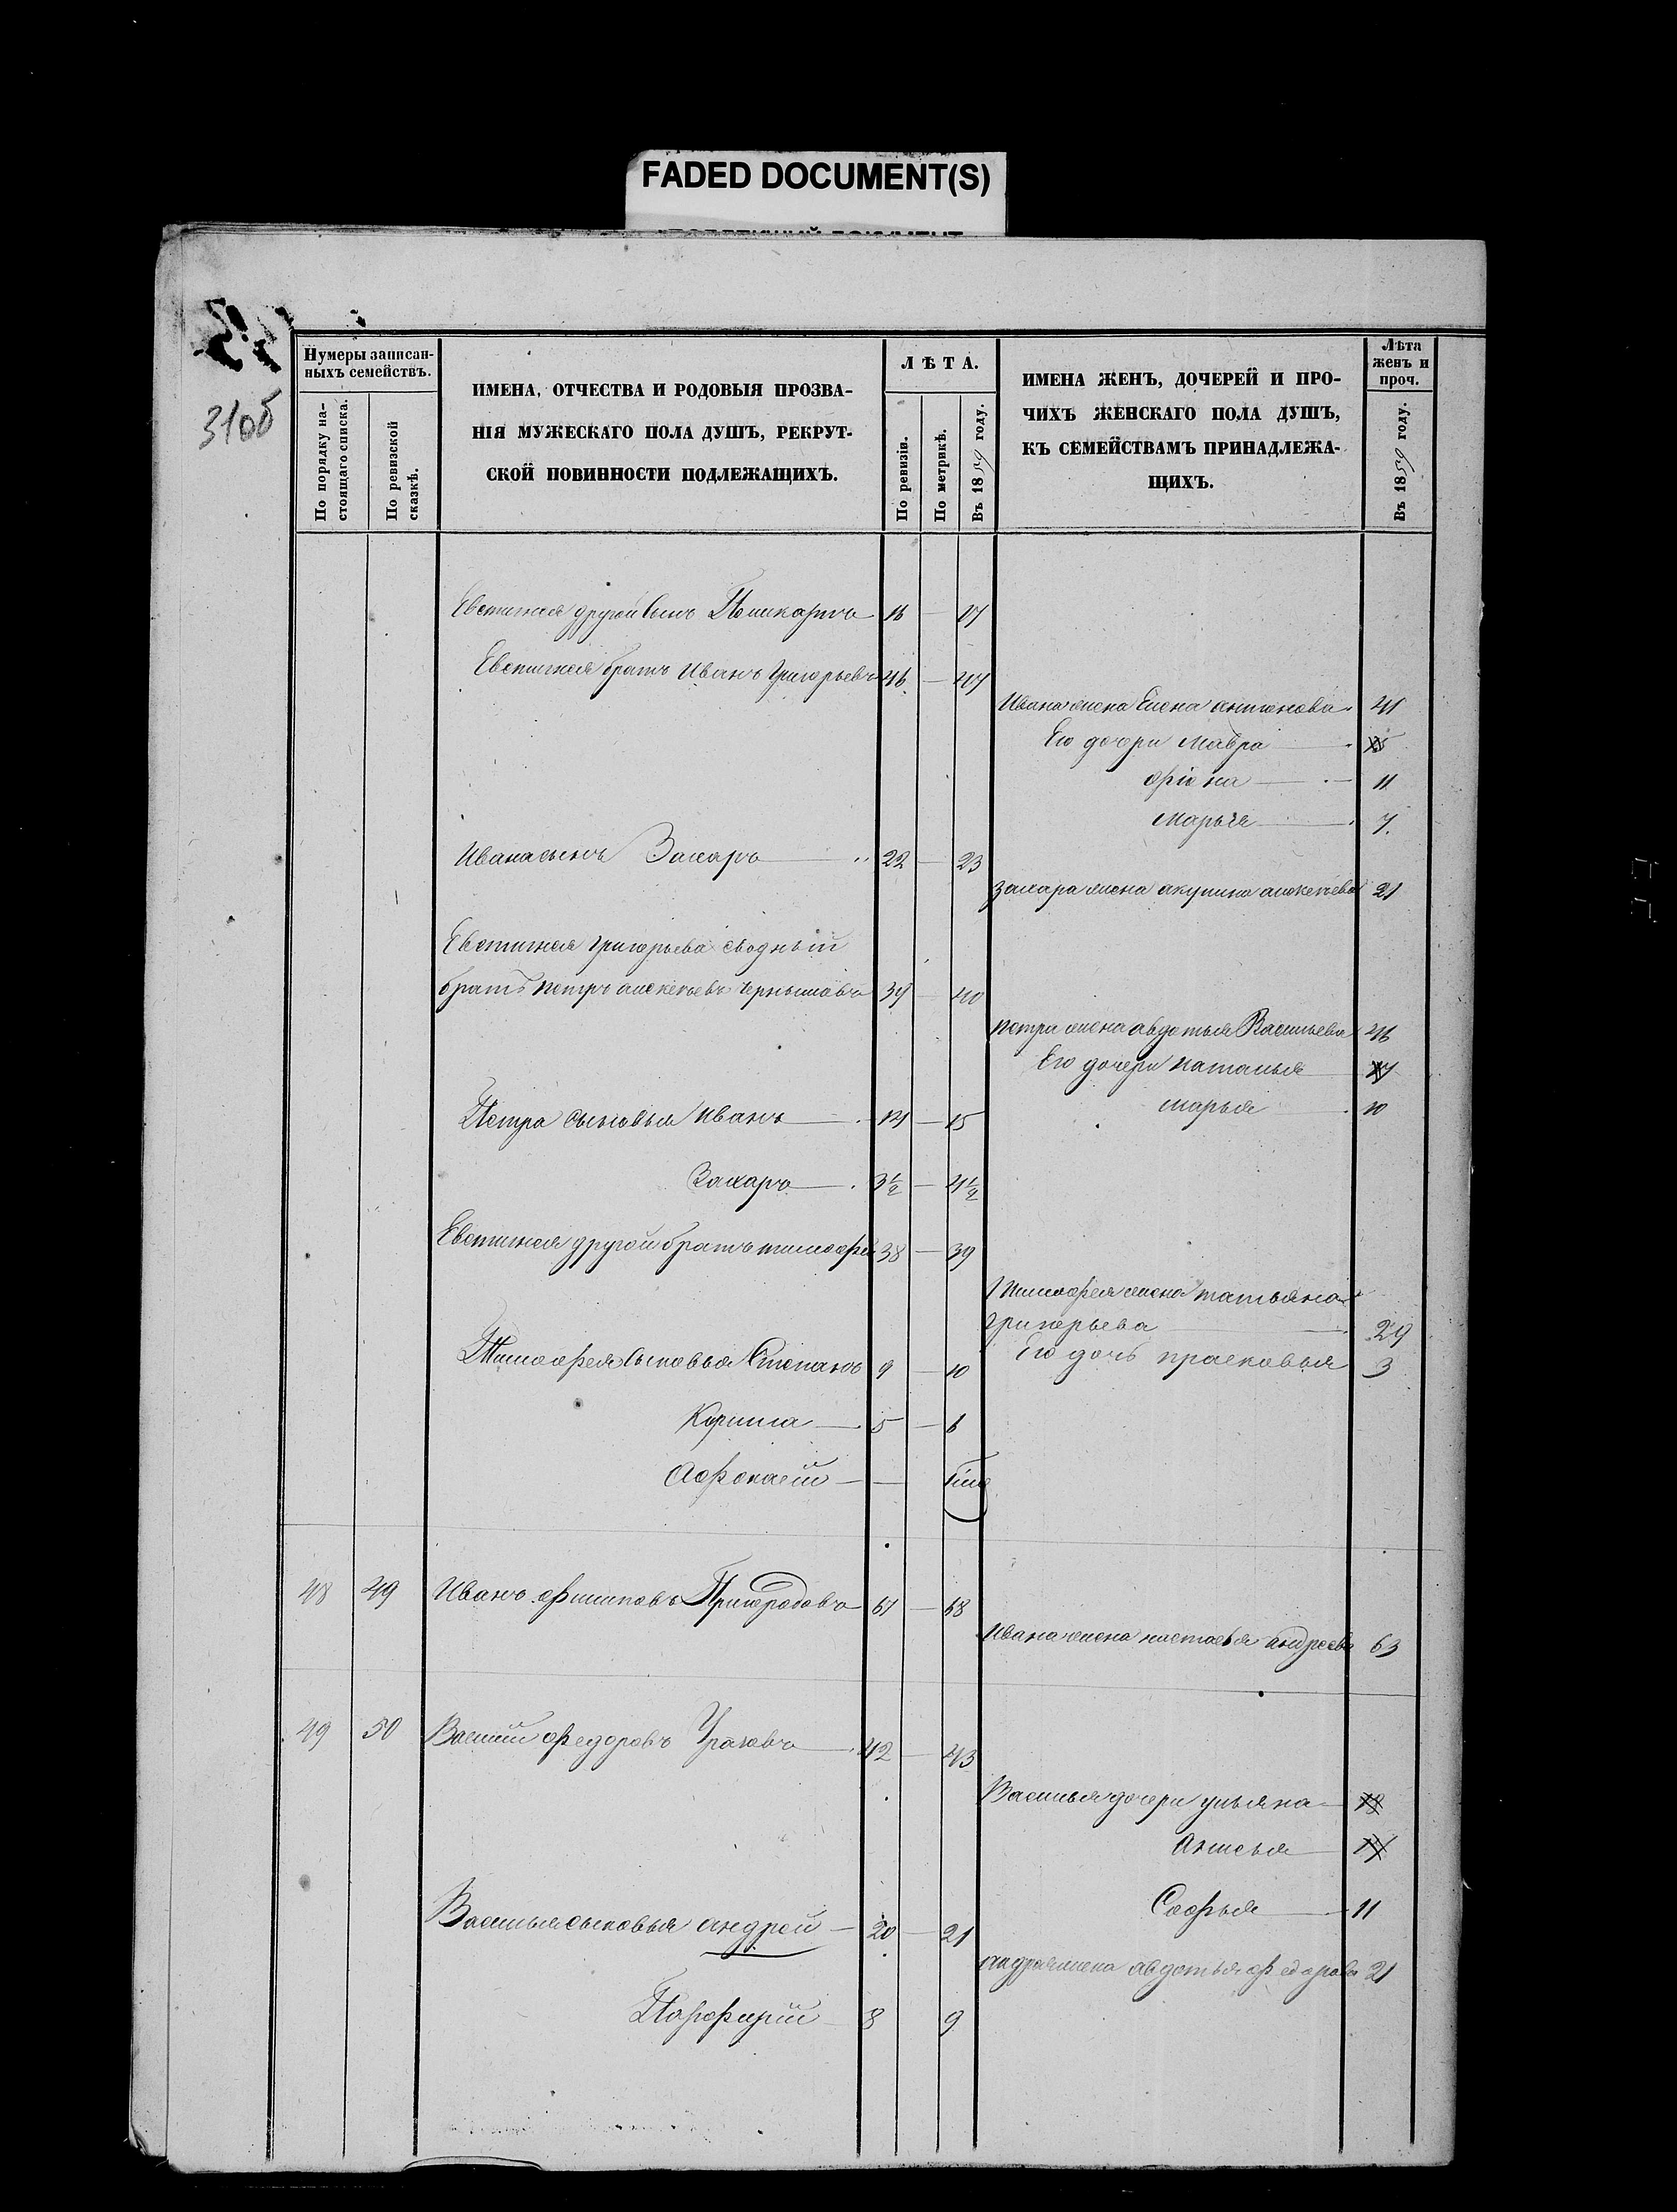 FADED DOCUMENT(S)
310б
Нумеры записан-
ныхъ семействъ.
По порядку на-
стоящаго списка.
По ревизской
сказкѣ.
ИМЕНА, ОТЧЕСТВА И РОДОВЫЯ ПРОЗВА-
НІЯ МУЖЕСКАГО ПОЛА ДУШЪ, РЕКРУТ-
СКОЙ ПОВИННОСТИ ПОДЛЕЖАЩИХЪ.
ЛѢТА.
По ревизіи.
По метрикѣ.
Въ 1859 году.
ИМЕНА ЖЕНЪ, ДОЧЕРЕЙ И ПРО-
ЧИХЪ ЖЕНСКАГО ПОЛА ДУШЪ,
КЪ СЕМЕЙСТВАМЪ ПРИНАДЛЕЖА-
ЩИХЪ.
Лѣта
женъ и
проч.
Въ 1859 году.
Евстигнея другой сынъ 16 — 17
Евстигнея братъ Иванъ Григорьевъ 46 — 47
Ивана жена Елена антонова 41
Его дочери Мавра
орина — 11
марья 7
Ивана сынъ Захаръ — 22 — 23
Захара жена акулина алексеева 21
Евстигнея григорьева сводный
братъ петръ алексеевъ чернышовъ 39 — 40
петра жена авдотья Васильева 46
Его дочери наталья
марья 10
Петра сыновья иванъ — 14 — 15
Захаръ — 3½ — 4½
Евстигнея другой братъ тимофей 38 — 39
Тимофея жена татьяна
григорьева 29
Тимофея сыновья Степанъ 9 — 10
Его дочь прасковья 3
Корнила — 5 — 6
Афонасій —
48 49 Иванъ филиповъ Пригородовъ 67 — 68
Ивана жена настасья андреева 63
49 50 Василій федоровъ 42 — 43
Василья дочери ульяна
Анисья
Софья — 11
Василья сыновья андрей — 20 — 21
андрея жена авдотья федорова 21
Порфирій 8 9